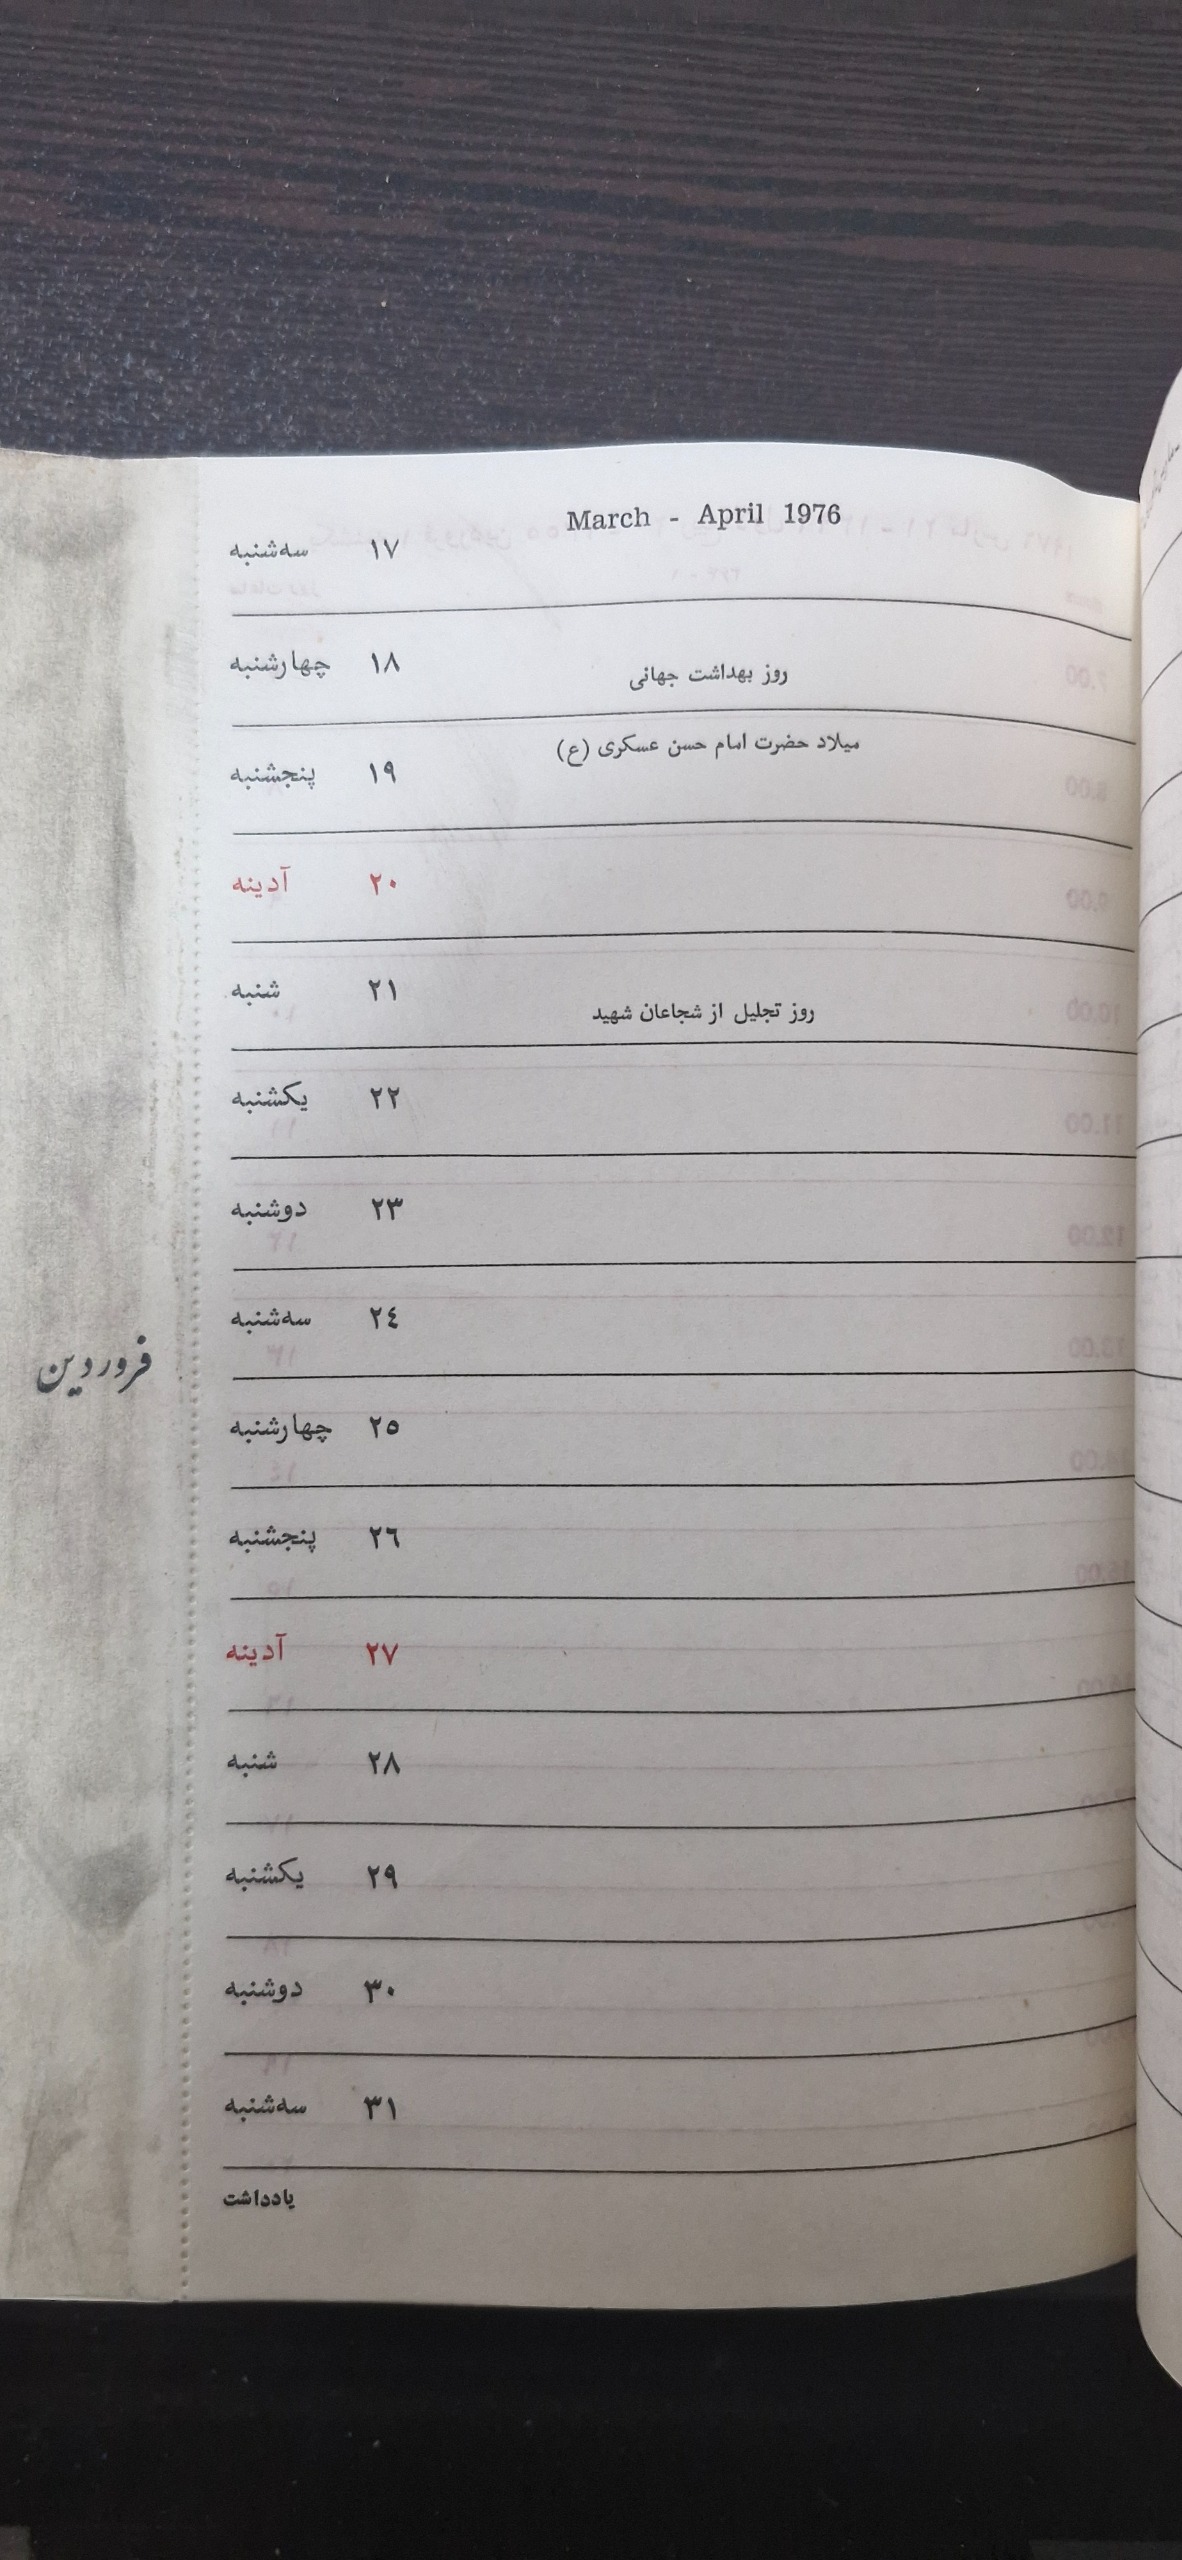 March - April 1976
سه‌شنبه ۱۷
چهارشنبه ۱۸ روز بهداشت جهانی
میلاد حضرت امام حسن عسکری (ع)
پنجشنبه ۱۹
آدینه ۲۰
شنبه ۲۱ روز تجلیل از شجاعان شهید
یکشنبه ۲۲
دوشنبه ۲۳
سه‌شنبه ۲٤
چهارشنبه ۲٥
پنجشنبه ۲٦
آدینه ۲۷
شنبه ۲۸
یکشنبه ۲۹
دوشنبه ۳۰
سه‌شنبه ۳۱
یادداشت
فروردین